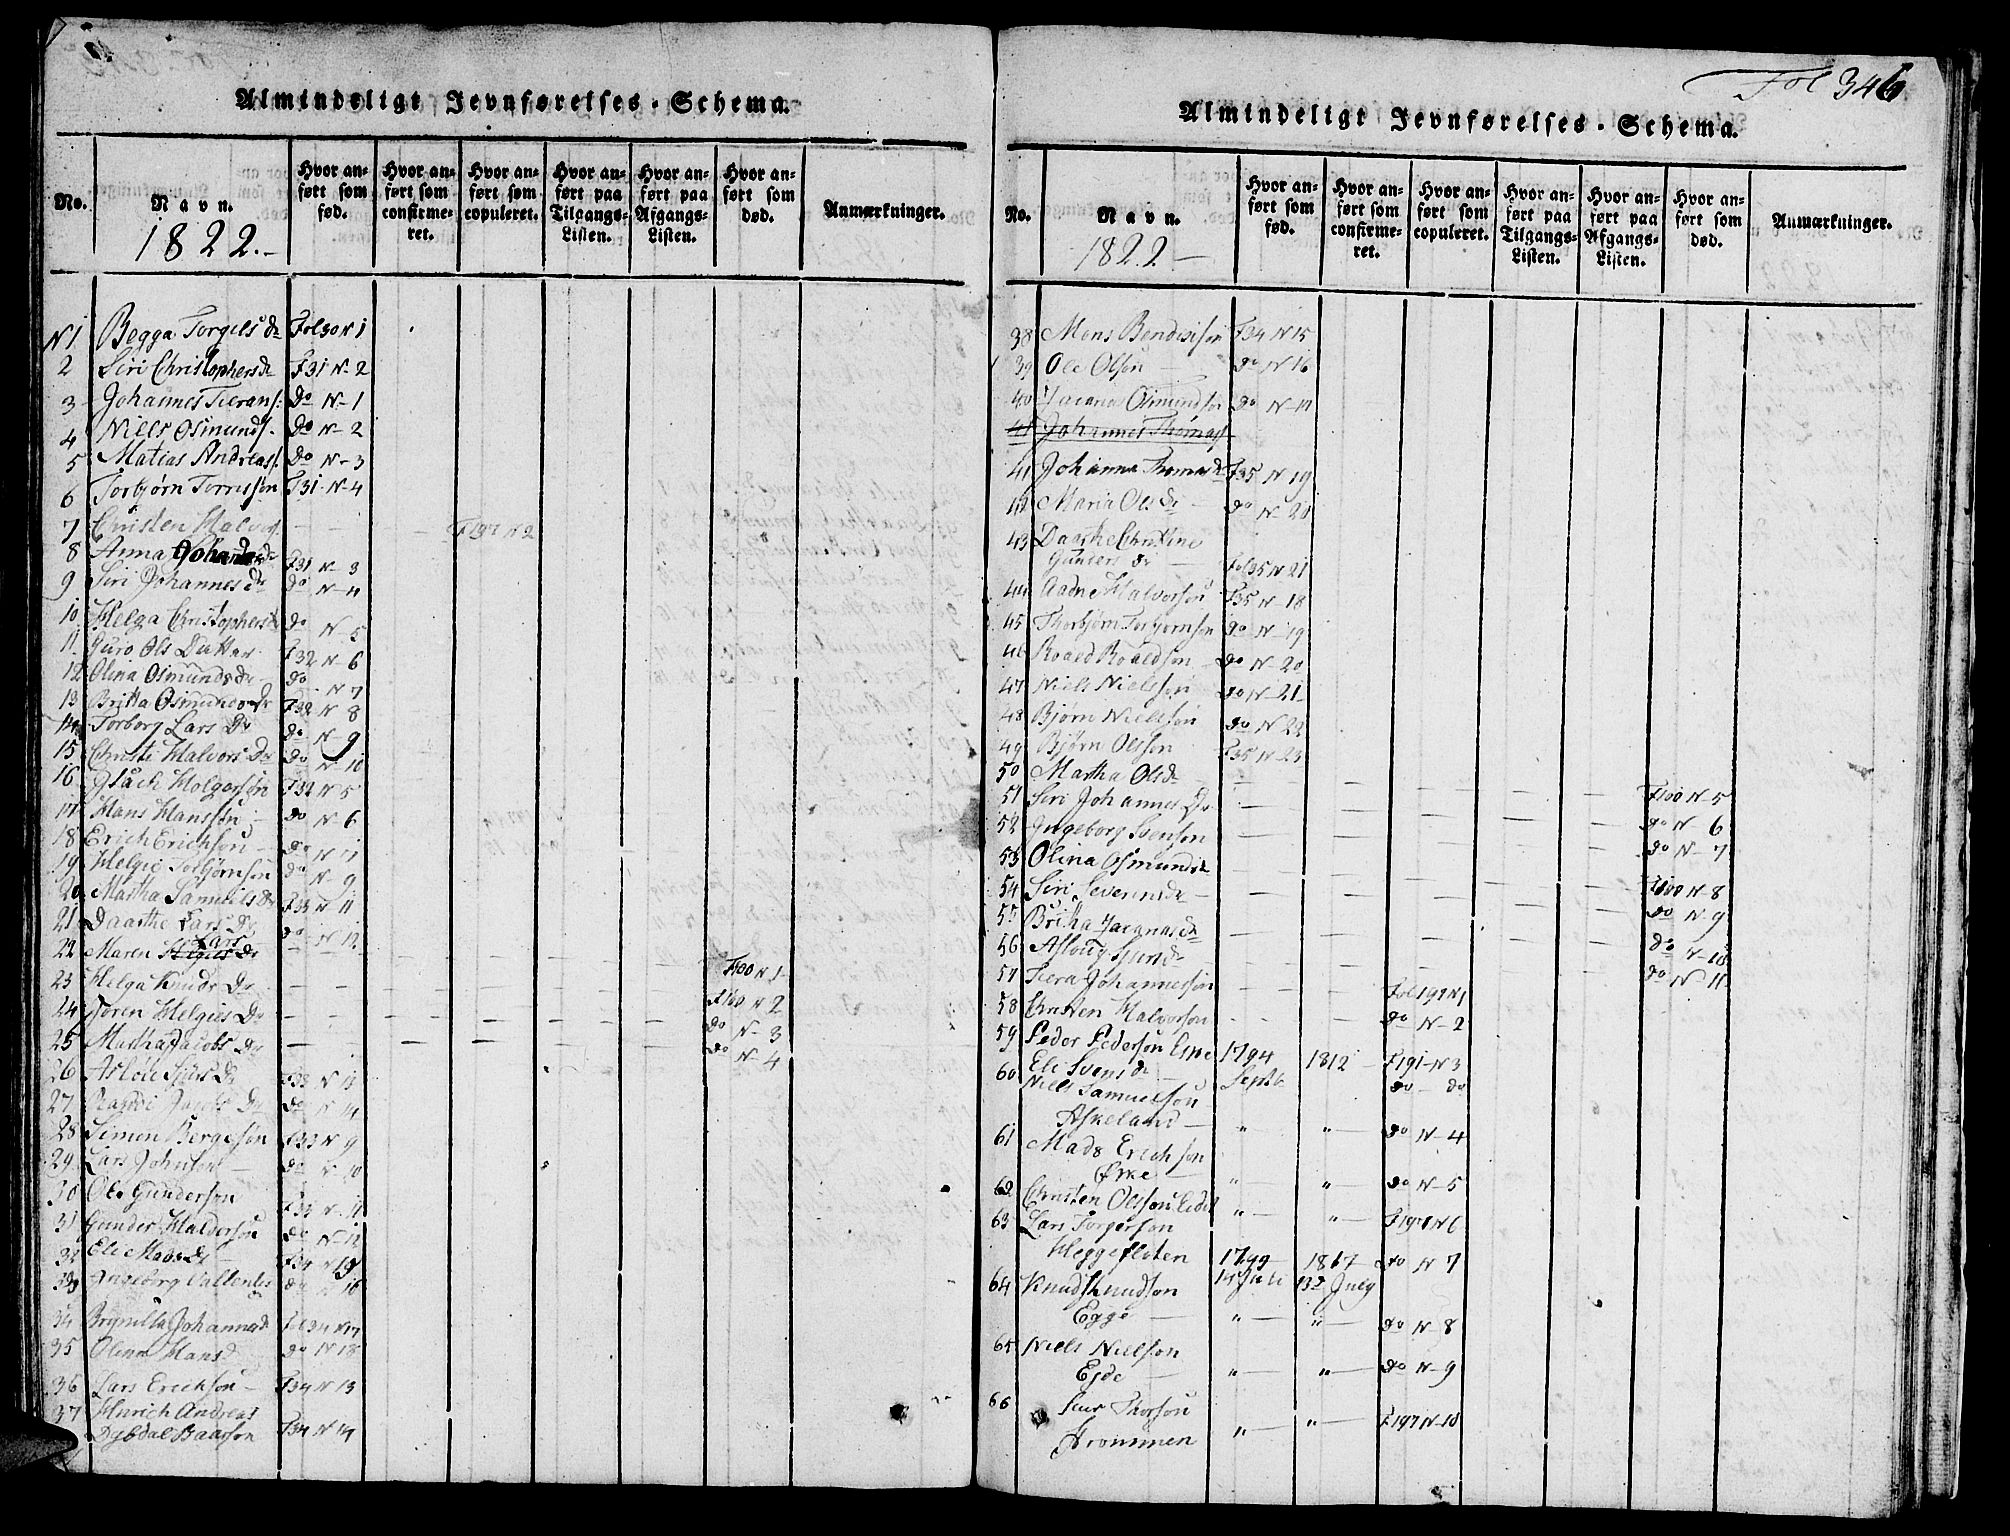 Fol 346
Almindeligt Jevnførelses-Schema.
No. Navn. Hvor anført som fød. Hvor anført som confirmeret. Hvor anført som copuleret. Hvor anført paa Tilgangs-Listen. Hvor anført paa Afgangs-Listen. Hvor anført som død. Anmærkninger.
1822.-
N 1 Begga Torgels dr Fol 30 N 1
2 Siri Christophersdr F31 N- 2
3 Johannes Tierans: Do N- 1
4 Niels Osmunds. Do N- 2
5 Matias Andreas: Do N- 3
6 Torbjørn Torrisson F31 N- 4
7 Christen Halvors. — — F 197 N 2
8 Anna Johannesdr F31 N- 3
9 Siri Johannesdr Do N- 4
10 Helga Christophersdr Do N- 5
11 Guro Ols Datter F32 N- 6
12 Olina Osmundsdr Do N 7
13 Britta Osmundsdr F32 N- 8
14 Torborg Lars Dr Do N- 9
15 Christi Halvors Dr Do N- 10
16 Holgerson F32 N 5
17 Hans Hansson Do N- 6
18 Erich Erichson Do N 11
19 Helgie Torbjørnson Do N- 9
20 Martha Samuels Dr F33 N 11
21 Daarthe Lars Dr Do N 12
Lars
22 Maren Helgies Dr — — — — — F100 N 1
23 Helga Knuds Dr — — — — — F100 N 2
24 Søren Helgies Dr — — — — — Do N- 3
25 Martha Jacobs Dr — — — — — Do N- 4
26 Aslou Sjurs Dr F33 N 13
27 Dr Do N 14
28 Simon Bergeson F33 N 9
29 Lars Johnson — Do N 10
30 Ole Gunderson F33 N- 11
31 Gunder Halvorson Do N- 12
32 Eli Mads dr F34 N 15
33 Ingeborg Vallentins Do N 16
34 Johannesdr Fol 34 N 17
35 Olina Hans d Do N 18
36 Lars Erichson — F34 N 13
37 Hinrich Andreas
Dybdal Baarson F34 N 14
Almindeligt Jevnførelses-Schema.
No. Navn. Hvor anført som fød. Hvor anført som confirmeret. Hvor anført som copuleret. Hvor anført paa Tilgangs-Listen. Hvor anført paa Afgangs-Listen. Hvor anført som død. Anmærkninger.
1822 —
38 Mons Bendixson F34 N 15
39 Ole Olson — Do N 16
40 Zacarias Osmundson Do N- 17
41 Johannes Thomass
41 Johanna Thomasdr F35 N 19
42 Maria Ols Dr — Do N- 20
43 Daarthe Christine
Gunders dr — Fol 35 N 21
44 Aadne Halvorson F35 N- 18
45 Thorbjørn Torbjørnson Do N- 19
46 Roald Roaldson — Do N- 20
47 Niels Nielsson Do N- 21
48 Bjørn Nielsson Do N 22
49 Bjørn Olsson F35 N- 23
50 Martha Olsdr — — — — — F100 N- 5
51 Siri Johannes Dr — — — — — Do N- 6
52 Ingeborg Svenson — — — — — Do N- 7
53 Olina Osmundsdr — — — — — F100 N- 8
54 Siri Severinsdr — — — — — Do N- 9
55 Britha Zacariasdr — — — — — Do N- 10
56 Asloug Sjursdr — — — — — Do N- 11
57 Tiera Johannesson — — Fol 197 N 1
58 Christen Halvorson - - — Do N- 2
59 Peder Pederson Eske 1794 1812 — F191- N 3
60 Eli Svens dr — Septb Do — Do
Niels Samuelson
Askeland — " "— Do N- 4
61 Mads Erichson
Ørke — " "— Do N- 5
62 Christen Olsson Eide "— "— F197 N 6
63 Lars Torgerson
Heggefloten 1799 1817 Do N 7
14 Juli 13de Juny
64 Knud Knudson
Egge — "— "— Do N- 8
65 Niels Nielson
Eide — "— "— Do N- 9
66 Siur Thorson
Strommen "— "— F197 N- 10